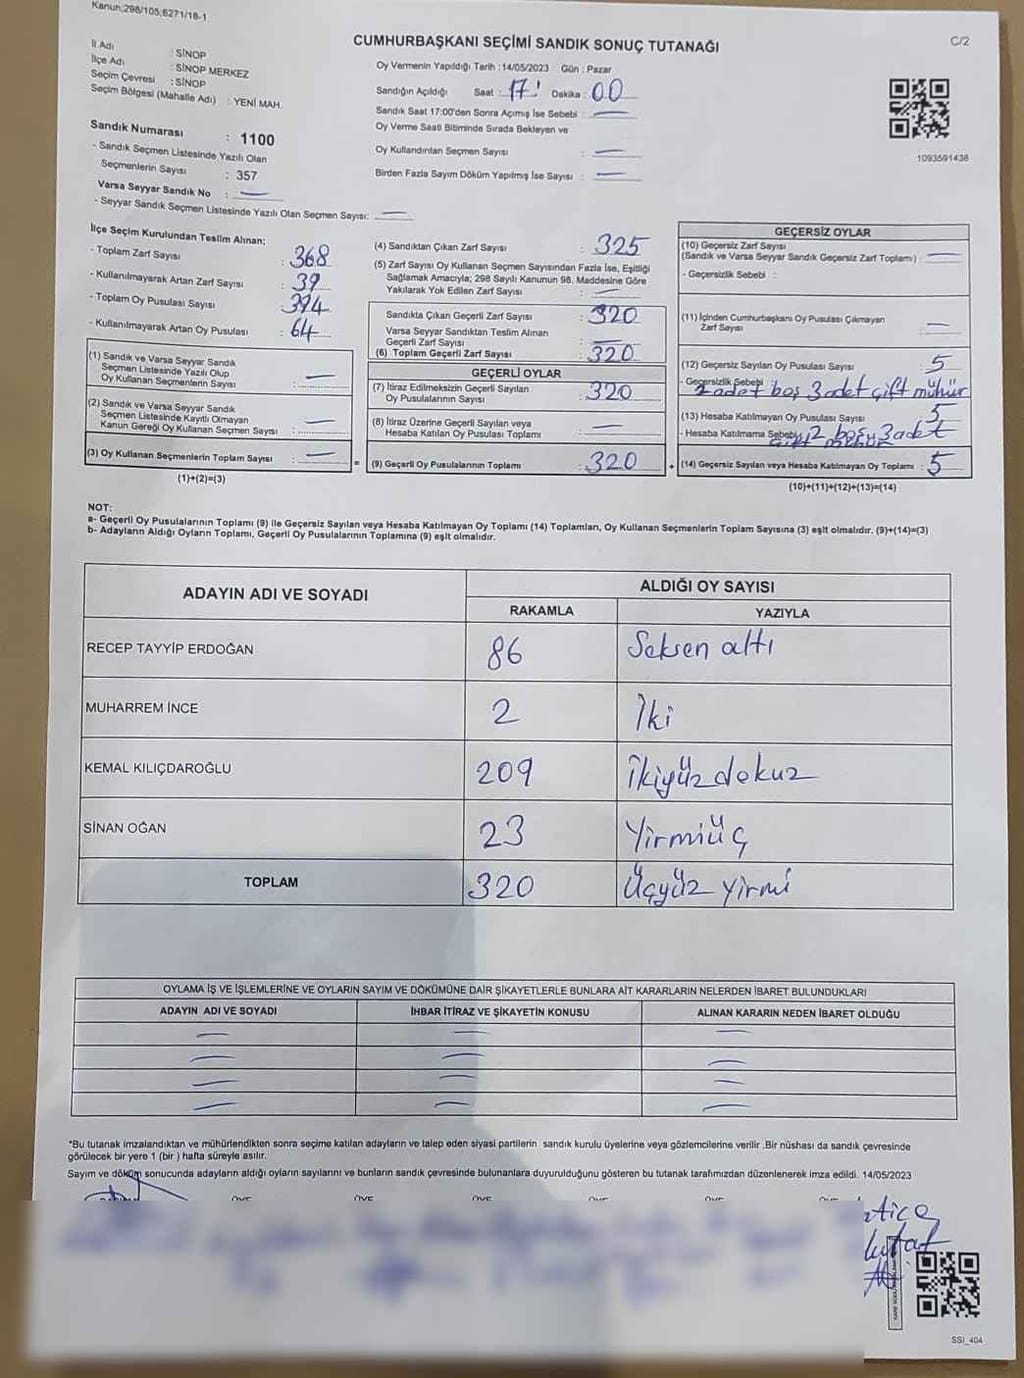 Kanun;298/105;6271/18-1
CUMHURBAŞKANI SEÇİMİ SANDIK SONUÇ TUTANAĞI
C/2
İl Adı : SİNOP
İlçe Adı : SİNOP MERKEZ
Seçim Çevresi : SİNOP
Seçim Bölgesi (Mahalle Adı) : YENİ MAH.
Oy Vermenin Yapıldığı Tarih : 14/05/2023 Gün : Pazar
Sandığın Açıldığı Saat : 17 Dakika : 00
Sandık Saat 17:00'den Sonra Açımış İse Sebebi : —
Oy Verme Saati Bitiminde Sırada Bekleyen ve
Oy Kullandırılan Seçmen Sayısı : —
Birden Fazla Sayım Döküm Yapılmış İse Sayısı : —
1093591436
Sandık Numarası : 1100
- Sandık Seçmen Listesinde Yazılı Olan
Seçmenlerin Sayısı : 357
Varsa Seyyar Sandık No : —
- Seyyar Sandık Seçmen Listesinde Yazılı Olan Seçmen Sayısı: —
İlçe Seçim Kurulundan Teslim Alınan;
- Toplam Zarf Sayısı : 368
- Kullanılmayarak Artan Zarf Sayısı : 39
- Toplam Oy Pusulası Sayısı : 394
- Kullanılmayarak Artan Oy Pusulası : 64
(1) Sandık ve Varsa Seyyar Sandık
Seçmen Listesinde Yazılı Olup
Oy Kullanan Seçmenlerin Sayısı : —
(2) Sandık ve Varsa Seyyar Sandık
Seçmen Listesinde Kayıtlı Olmayan
Kanun Gereği Oy Kullanan Seçmen Sayısı : —
(3) Oy Kullanan Seçmenlerin Toplam Sayısı : —
(1)+(2)=(3)
(4) Sandıktan Çıkan Zarf Sayısı : 325
(5) Zarf Sayısı Oy Kullanan Seçmen Sayısından Fazla İse, Eşitliği
Sağlamak Amacıyla; 298 Sayılı Kanunun 98. Maddesine Göre
Yakılarak Yok Edilen Zarf Sayısı : —
Sandıkta Çıkan Geçerli Zarf Sayısı : 320
Varsa Seyyar Sandıktan Teslim Alınan
Geçerli Zarf Sayısı : —
(6) Toplam Geçerli Zarf Sayısı : 320
GEÇERLİ OYLAR
(7) İtiraz Edilmeksizin Geçerli Sayılan
Oy Pusulalarının Sayısı : 320
(8) İtiraz Üzerine Geçerli Sayılan veya
Hesaba Katılan Oy Pusulası Toplamı : —
= (9) Geçerli Oy Pusulalarının Toplamı : 320
GEÇERSİZ OYLAR
(10) Geçersiz Zarf Sayısı
(Sandık ve Varsa Seyyar Sandık Geçersiz Zarf Toplamı) : —
- Geçersizlik Sebebi :
(11) İçinden Cumhurbaşkanı Oy Pusulası Çıkmayan
Zarf Sayısı : —
(12) Geçersiz Sayılan Oy Pusulası Sayısı : 5
- Geçersizlik Sebebi : 2 adet boş 3 adet çift mühür
(13) Hesaba Katılmayan Oy Pusulası Sayısı : 5
- Hesaba Katılmama Sebebi 2 boş 3 adet
+ (14) Geçersiz Sayılan veya Hesaba Katılmayan Oy Toplamı : 5
(10)+(11)+(12)+(13)=(14)
NOT:
a- Geçerli Oy Pusulalarının Toplamı (9) ile Geçersiz Sayılan veya Hesaba Katılmayan Oy Toplamı (14) Toplamları, Oy Kullanan Seçmenlerin Toplam Sayısına (3) eşit olmalıdır. (9)+(14)=(3)
b- Adayların Aldığı Oyların Toplamı, Geçerli Oy Pusulalarının Toplamına (9) eşit olmalıdır.
ADAYIN ADI VE SOYADI ALDIĞI OY SAYISI
RAKAMLA YAZIYLA
RECEP TAYYİP ERDOĞAN 86 Seksen altı
MUHARREM İNCE 2 İki
KEMAL KILIÇDAROĞLU 209 İkiyüz dokuz
SİNAN OĞAN 23 Yirmiüç
TOPLAM 320 Üçyüz yirmi
OYLAMA İŞ VE İŞLEMLERİNE VE OYLARIN SAYIM VE DÖKÜMÜNE DAİR ŞİKAYETLERLE BUNLARA AİT KARARLARIN NELERDEN İBARET BULUNDUKLARI
ADAYIN ADI VE SOYADI İHBAR İTİRAZ VE ŞİKAYETİN KONUSU ALINAN KARARIN NEDEN İBARET OLDUĞU
— — —
— — —
— — —
— — —
*Bu tutanak imzalandıktan ve mühürlendikten sonra seçime katılan adayların ve talep eden siyasi partilerin sandık kurulu üyelerine veya gözlemcilerine verilir .Bir nüshası da sandık çevresinde
görülecek bir yere 1 (bir ) hafta süreyle asılır.
Sayım ve döküm sonucunda adayların aldığı oyların sayılarını ve bunların sandık çevresinde bulunanlara duyurulduğunu gösteren bu tutanak tarafımızdan düzenlenerek imza edildi. 14/05/2023
SSI_404